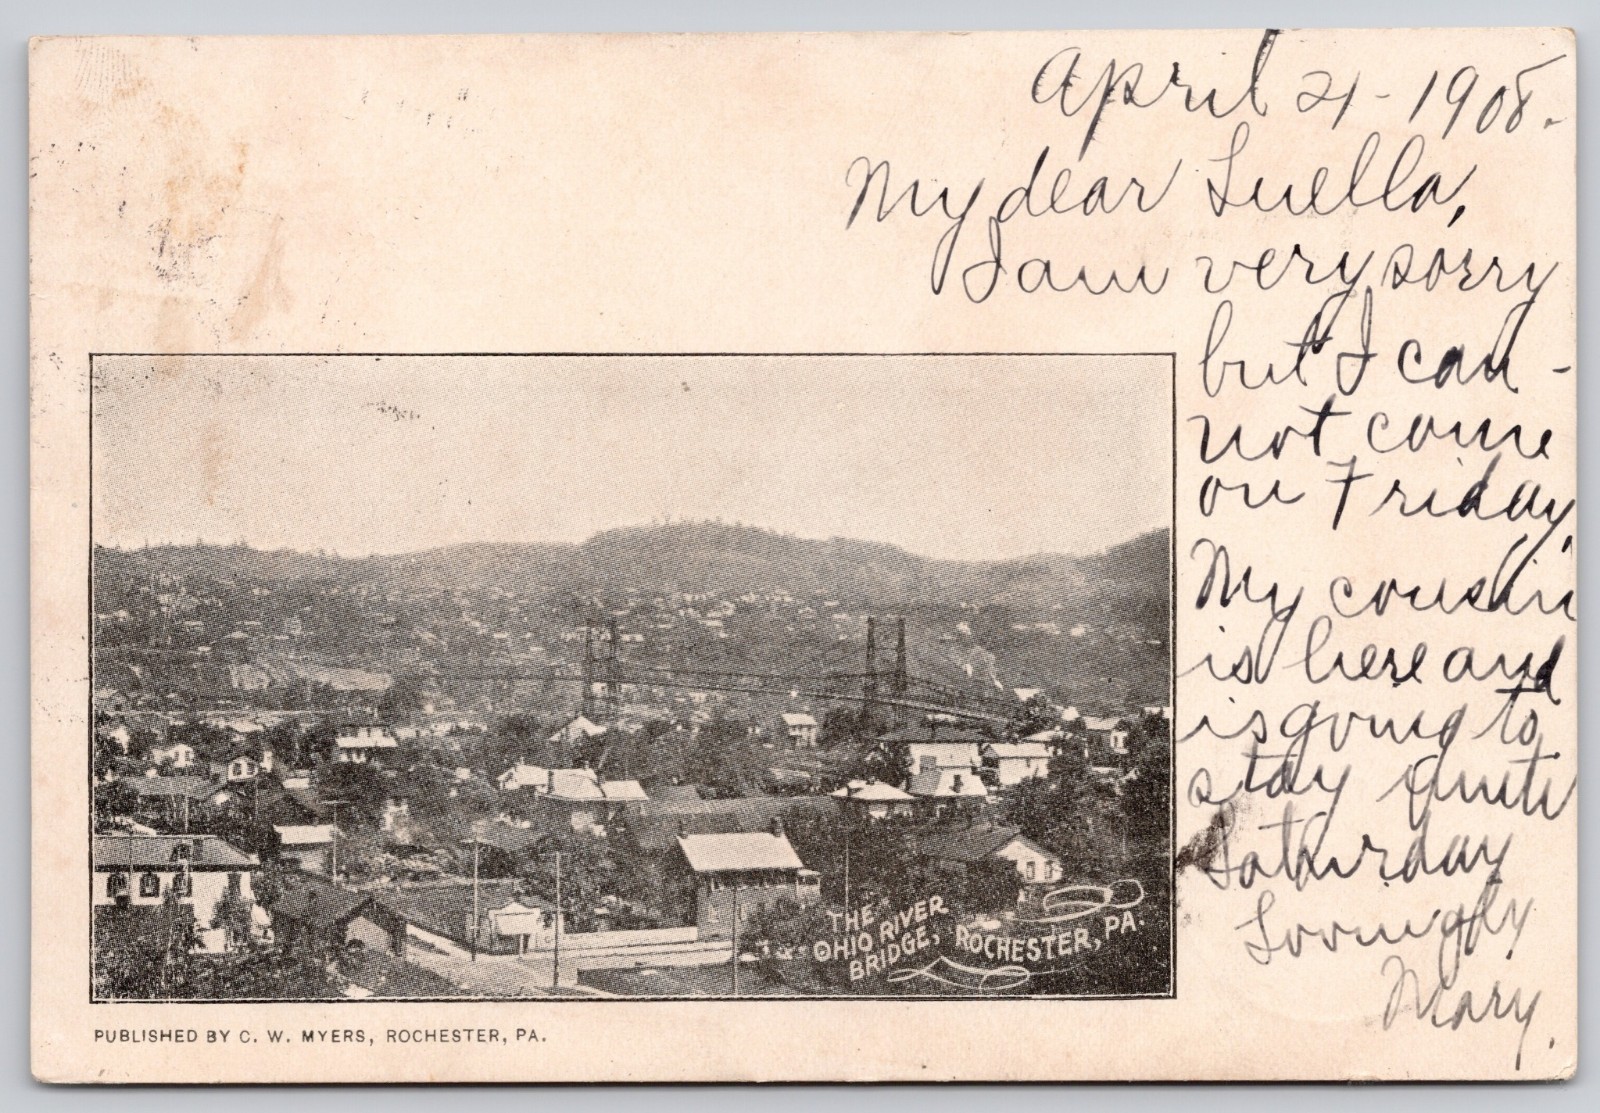 April 21-1908.
My dear Luella,
I am very sorry
but I can-
not come
on Friday.
My cousin
is here and
is going to
stay until
Saturday
Lovingly
Mary.
THE
OHIO RIVER
BRIDGE, ROCHESTER, PA.
PUBLISHED BY C. W. MYERS, ROCHESTER, PA.